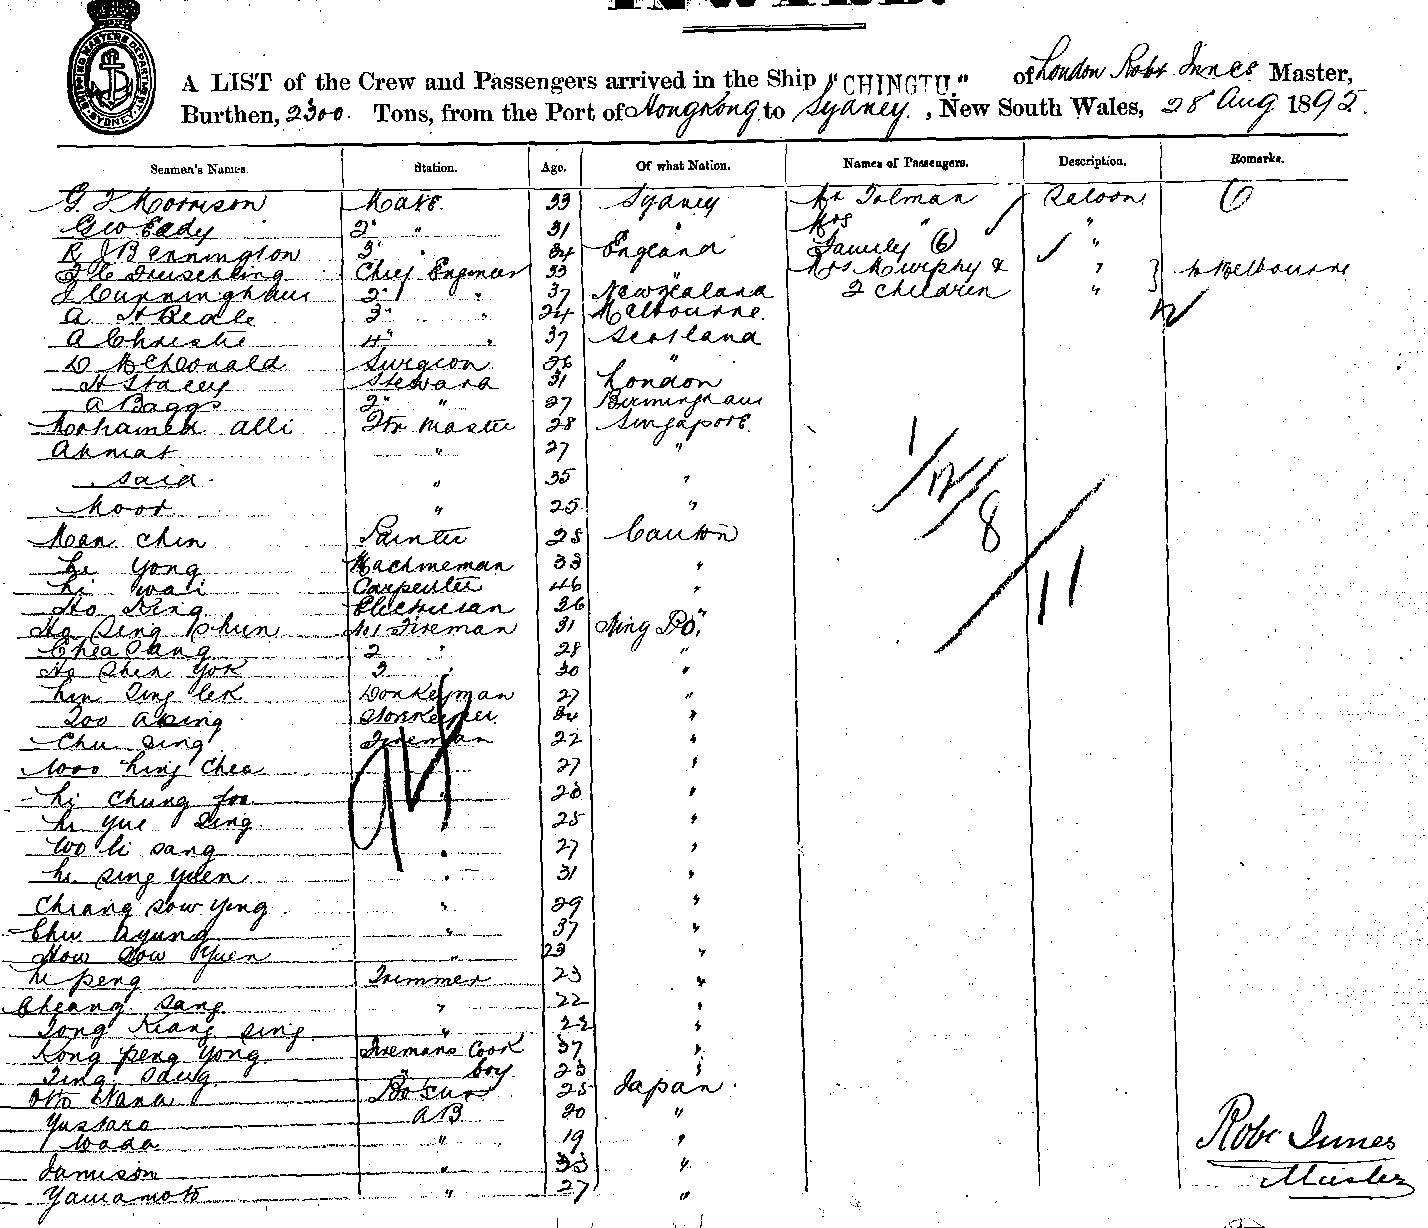 INWARD.
SHIPPING MASTERS DEPARTMENT SYDNEY
A LIST of the Crew and Passengers arrived in the Ship "CHINGTU." of London Robt Innes Master,
Burthen, 2300 Tons, from the Port of Hongkong to Sydney, New South Wales, 28 Aug 1895.
Seamen's Names. Station. Age. Of what Nation. Names of Passengers. Description. Remarks.
G. Morrison Mate 33 Sydney Mr Tolman Saloon 6
Geo Eady 2" " 31 " Mrs " "
R J Bennington 3" " 34 England Family (6) "
Chief Engineer 33 " Mrs Murphy & " } to Melbourne
J Cunningham 2" " 37 New Zealand 2 Children "
A H Beale 3" " 24 Melbourne
A Christie 4" " 37 Scotland
D McDonald Surgeon 26 "
H Stacey Steward 31 London
A Baggs 2" " 27 Birmingham
Mohamed Alli Qtr Master 28 Singapore
Ahmat " 27 "
Said " 35 "
Noor " 25 "
Man Chin Painter 28 Canton
Li Yong Machineman 33 "
Li Wai Carpenter 46 "
Ho King Electrician 26 "
Ho Sing Chun No 1 Fireman 31 Ning Po
Chea Sang 2 " 28 "
Ho Shen Yok 3 " 30 "
Lin Sing Lek Donkeyman 27 "
Too Asing Storekeeper 34 "
Chu Sing Fireman 22 "
Woo Ling Chea 27 "
Li Chung Foo 28 "
Li Yue Sing 25 "
Wo Li Sang " 27 "
Li Sing Yuen " 31 "
Chiang Sow Ying " 29 "
Chu Ayung " 37 "
How Sow Yuen " 23 "
Li Peng Trimmer 23 "
Cheang Sang " 22 "
Tong Kiang Sing " 22 "
Kong Peng Yong Firemans Cook 37 "
Ting Sang " boy 23 "
Otto Hana Bosun 25 Japan
Yussaro AB 20 "
Wada " 19 "
Jamieson " 33 "
Yamamoto " 27 "
1/12/8/11
94
Robt Innes
Master